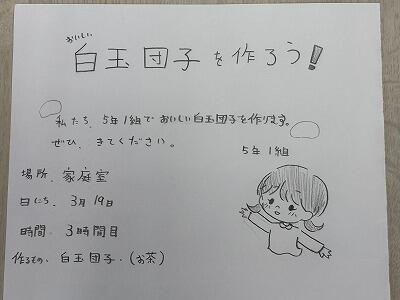 おいしい
白玉団子を作ろう!
私たち、5年1組でおいしい白玉団子を作ります。
ぜひ、きてください。
5年1組
場所、家庭室
日にち、3月19日
時間、3時間目
作るもの、白玉団子・(お茶)